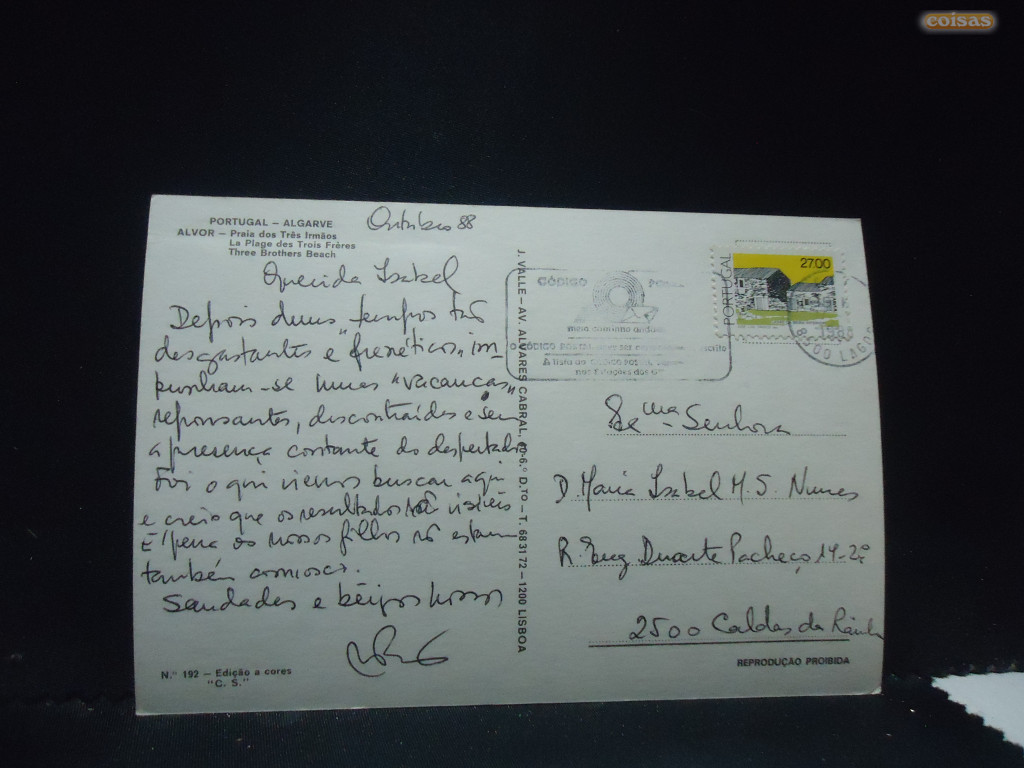 coisas
PORTUGAL – ALGARVE
ALVOR – Praia dos Três Irmãos
La Plage des Trois Frères
Three Brothers Beach
Outubro 88
Querida Isabel
Depois duns tempos tão
desgastantes e "frenéticos" im-
punham-se umas "vacanças"
repousantes, descontraídas e sem
a presença constante do despertador
Foi o que viemos buscar aqui
e creio que os resultados são visíveis
É pena os nossos filhos não estarem
também connosco.
Saudades e beijos nossos
Nº 192 – Edição a cores
"C. S."
J. VALLE – AV. ALVARES CABRAL, 6.º D.TO – T. 683172 – 1200 LISBOA
CÓDIGO POSTAL
meio caminho andado
O CÓDIGO POSTAL
A lista do CÓDIGO POSTAL
nas Estações dos CTT
PORTUGAL
27.00
1988
8600 LAGOS
Senhora
D. Maria Isabel M. S. Nunes
R. Eng. Duarte Pacheco 14-2º
2500 Caldas da Rainha
REPRODUÇÃO PROIBIDA